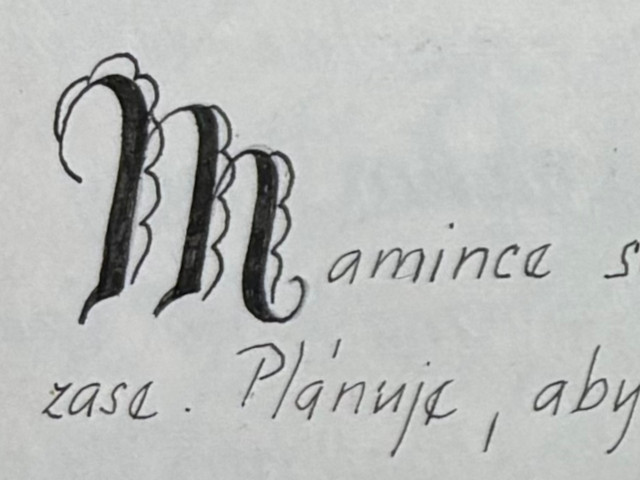 Mamince s
zase. Plánuje, aby